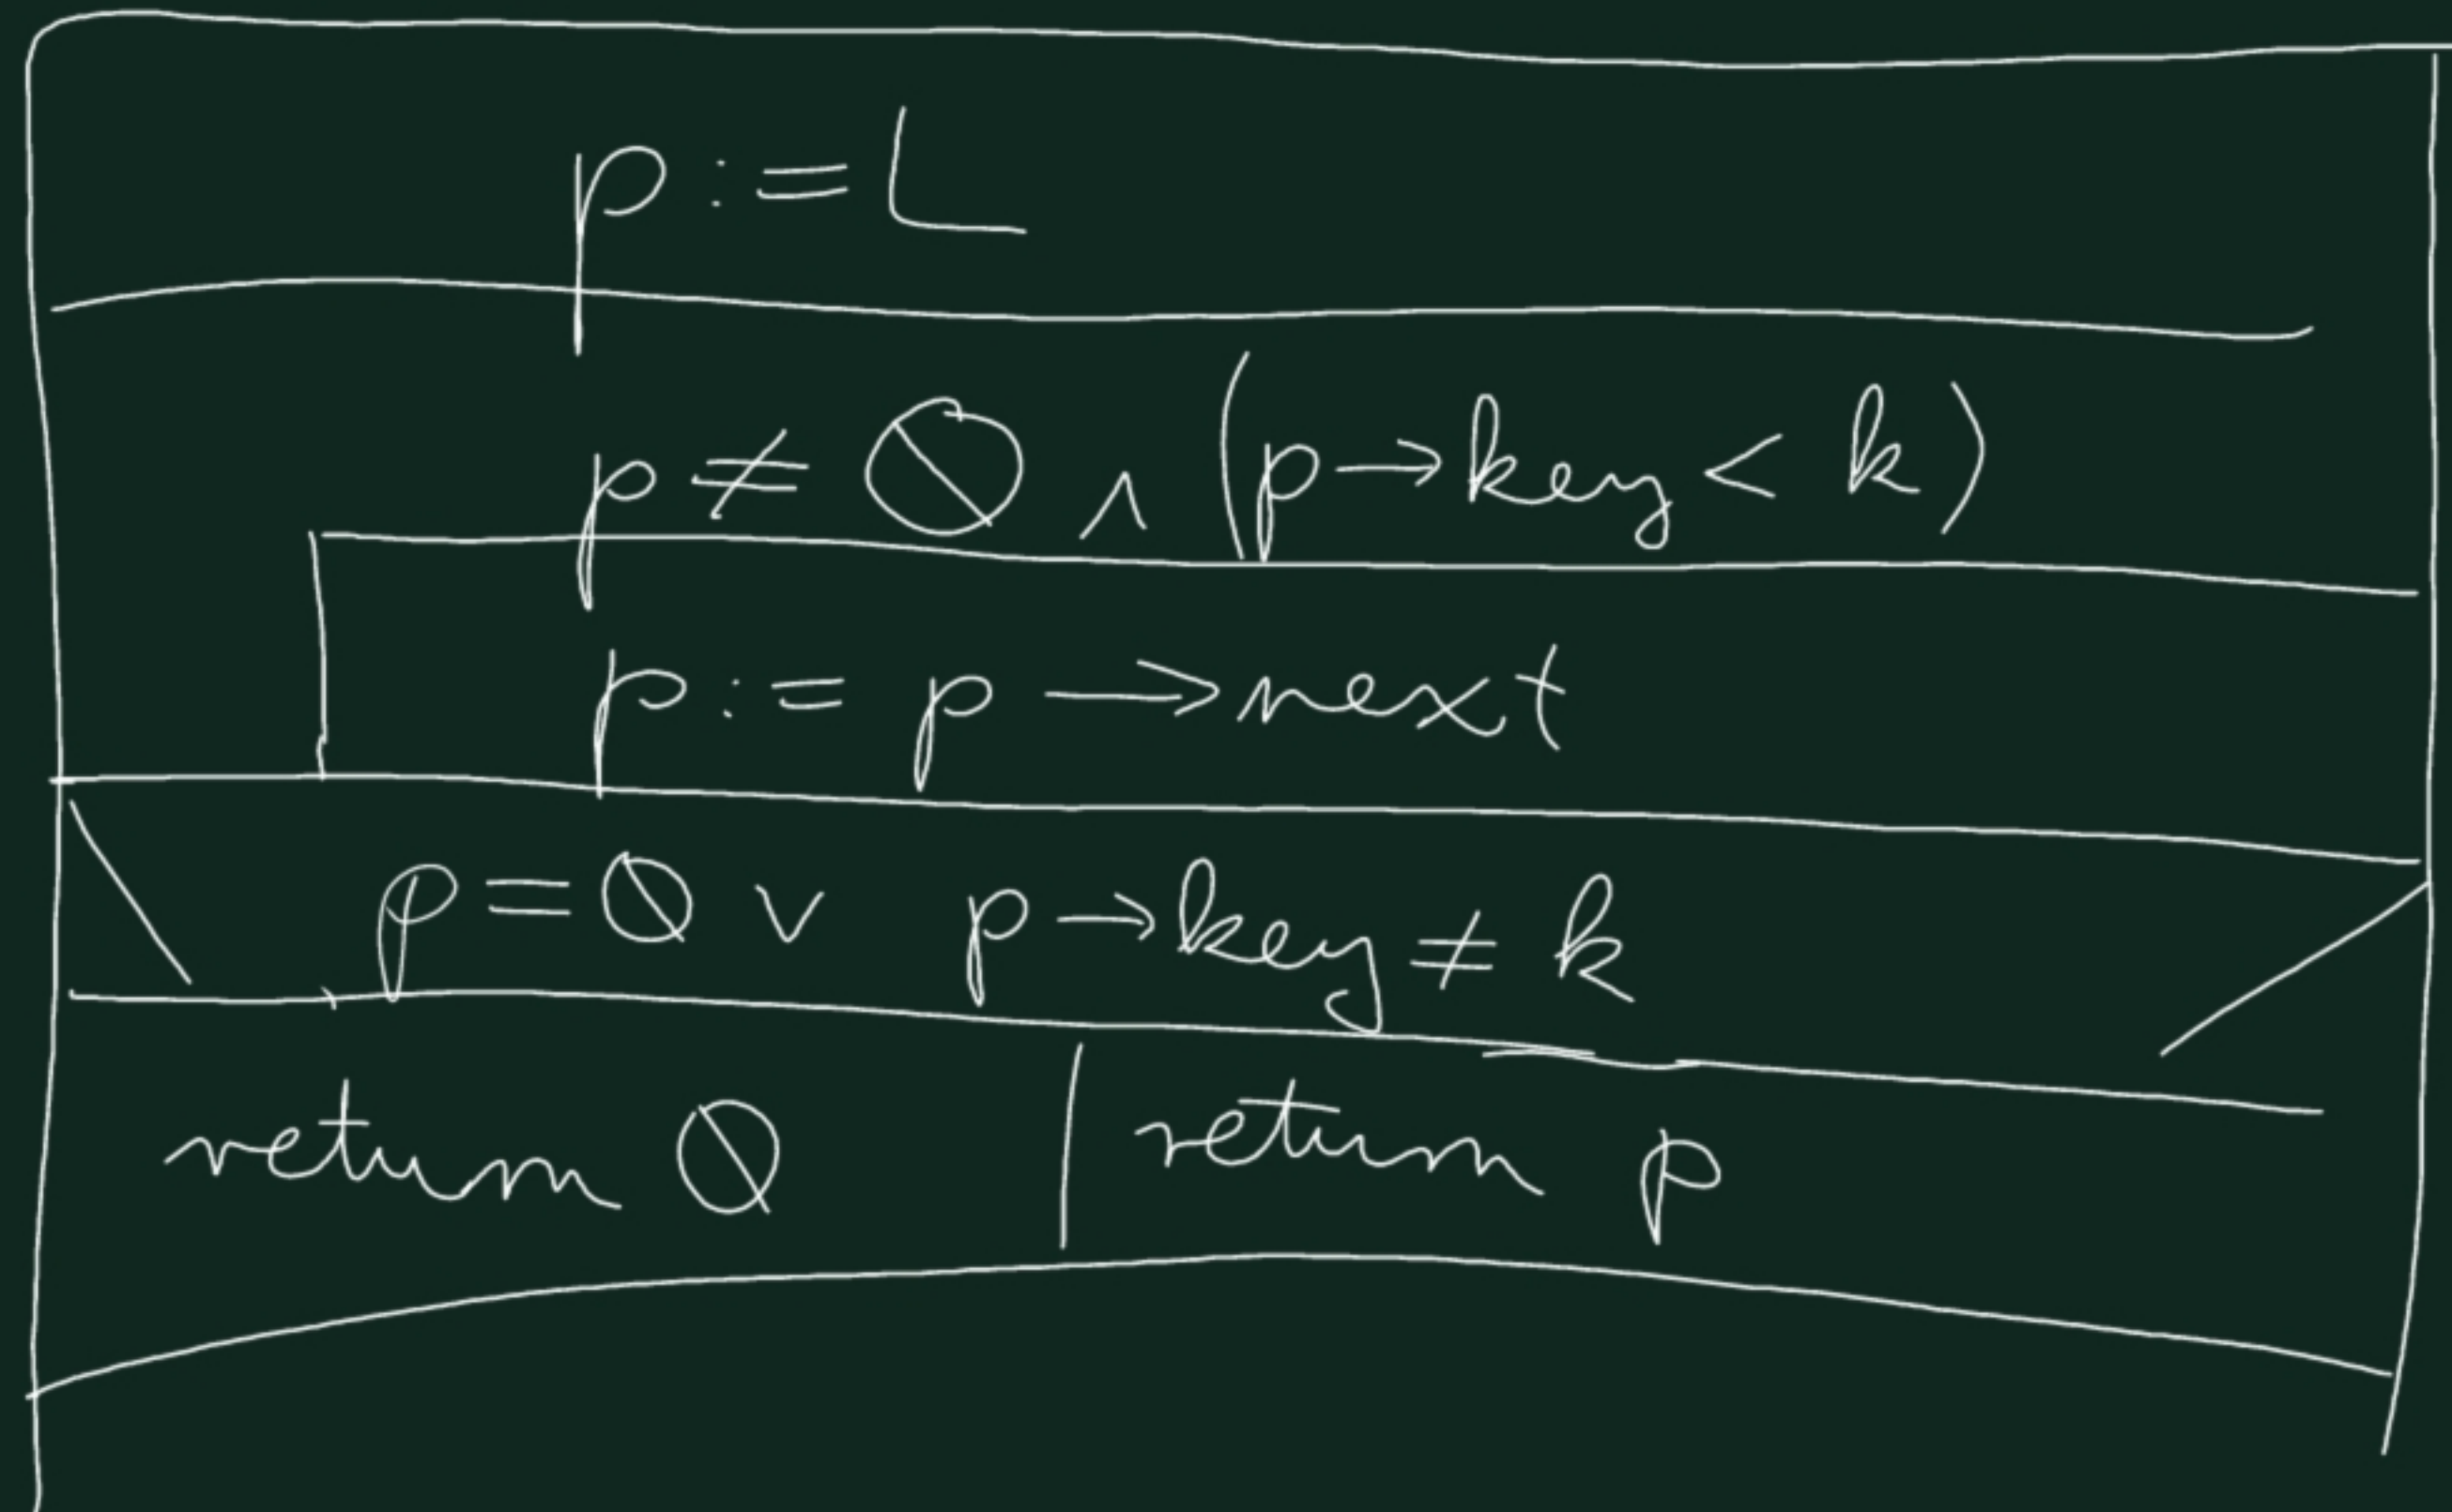 p := L
p ≠ ∅ ∧ (p → key < k)
p := p → next
p = ∅ ∨ p → key ≠ k
return ∅ | return p